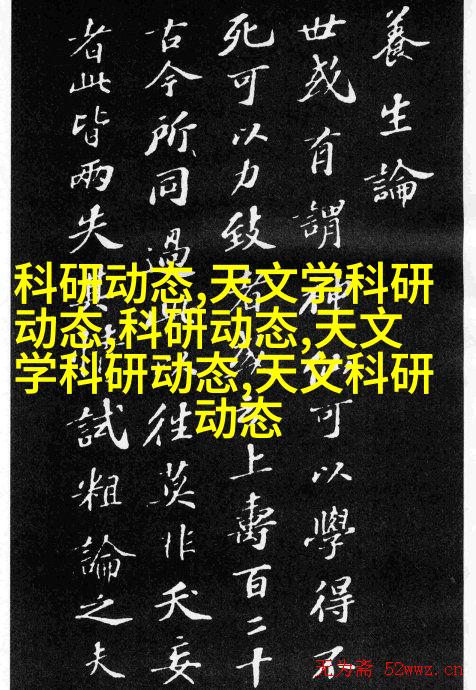 養生論
世或有謂神可以學得不
死可以力致上壽百二十
古今所同過往莫非夭妄
者此皆兩失試粗論之夫
科研动态,天文学科研
动态,科研动态,天文
学科研动态,天文科研
动态
无为斋 52wwz.cn